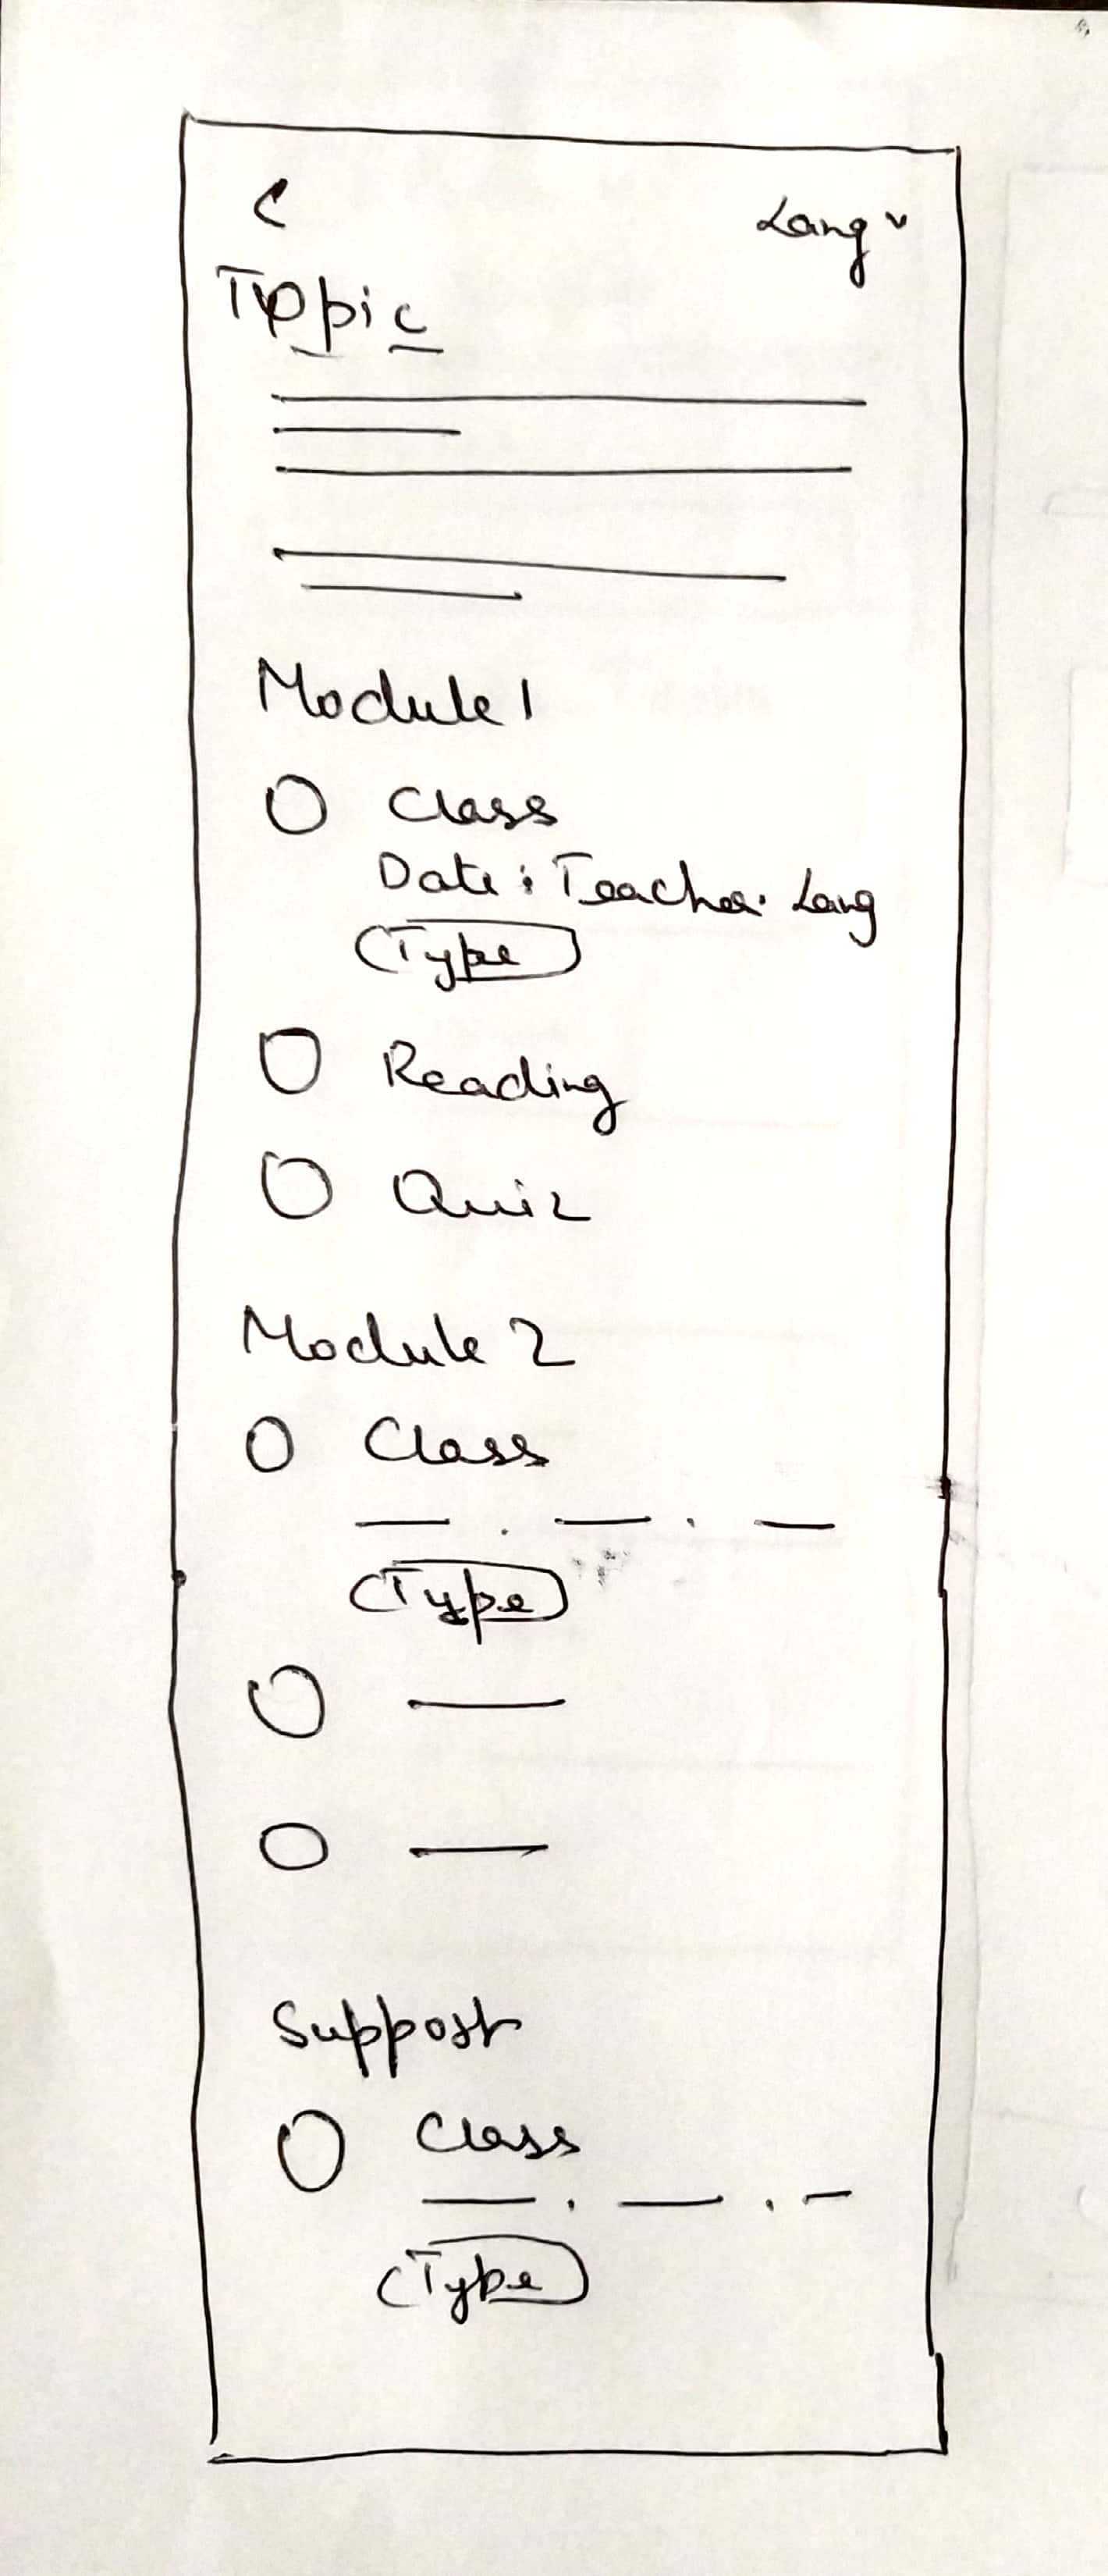 < Lang v
Topic
Module 1
Class
Date : Teacher . Lang
Type
Reading
Quiz
Module 2
Class
Type
Support
Class
Type